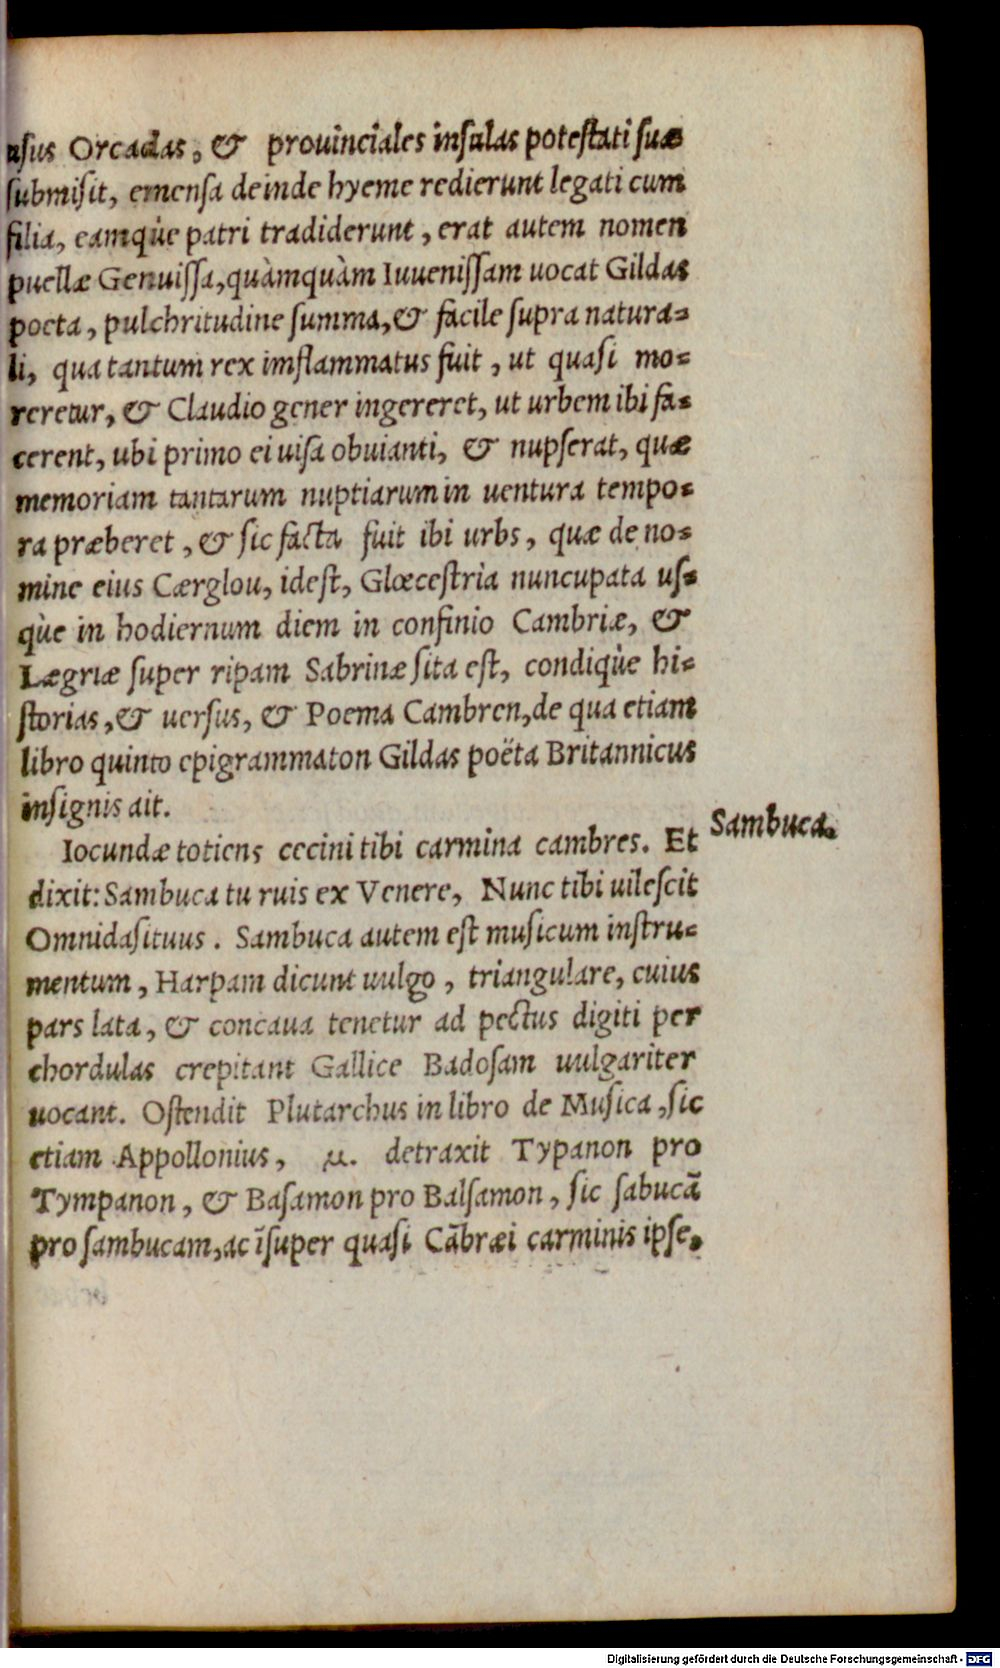 usus Orcadas, & prouinciales insulas potestati suæ
submisit, emensa deinde hyeme redierunt legati cum
filia, eamq́ue patri tradiderunt, erat autem nomen
puellæ Genuissa, quàmquàm Iuuenissam uocat Gildas
poeta, pulchritudine summa, & facile supra natura-
li, qua tantum rex imflammatus fuit, ut quasi mo-
reretur, & Claudio gener ingereret, ut urbem ibi fa-
cerent, ubi primo ei uisa obuianti, & nupserat, quæ
memoriam tantarum nuptiarum in uentura tempo-
ra præberet, & sic facta fuit ibi urbs, quæ de no-
mine eius Cærglou, idest, Glœcestria nuncupata us-
q́ue in hodiernum diem in confinio Cambriæ, &
Lægriæ super ripam Sabrinæ sita est, condiq́ue hi-
storias, & uersus, & Poema Cambren, de qua etiam
libro quinto epigrammaton Gildas poëta Britannicus
insignis ait.
Iocundæ totiens cecini tibi carmina cambres. Et
Sambuca.
dixit: Sambuca tu ruis ex Venere, Nunc tibi uilescit
Omnidasituus. Sambuca autem est musicum instru-
mentum, Harpam dicunt uulgo, triangulare, cuius
pars lata, & concaua tenetur ad pectus digiti per
chordulas crepitant Gallice Badosam uulgariter
uocant. Ostendit Plutarchus in libro de Musica, sic
etiam Appollonius, μ. detraxit Typanon pro
Tympanon, & Basamon pro Balsamon, sic sabucā
pro sambucam, ac īsuper quasi Cābræi carminis ipse.
Digitalisierung gefördert durch die Deutsche Forschungsgemeinschaft - DFG